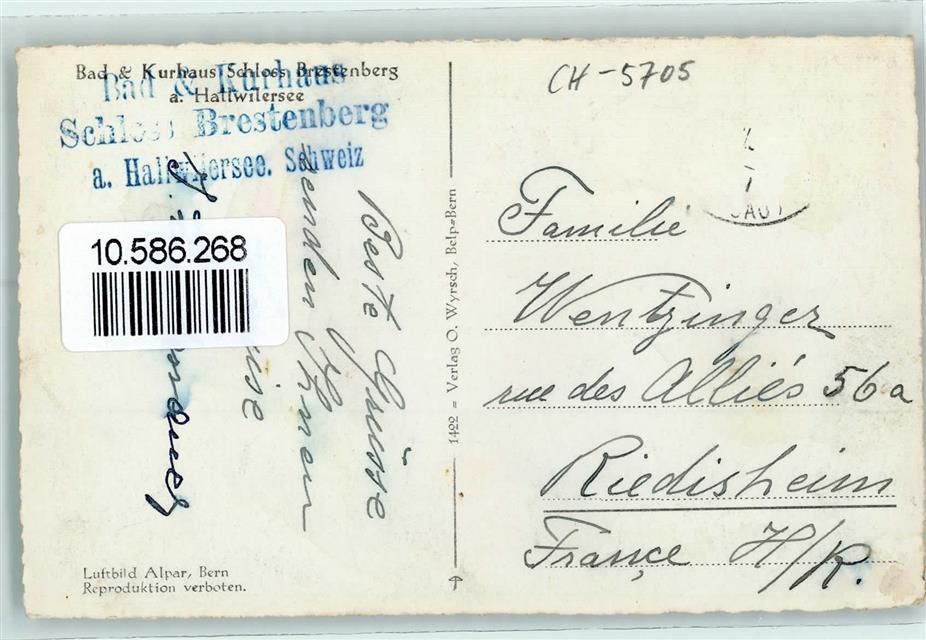 Bad & Kurhaus Schloss Brestenberg
a. Hallwilersee
Bad & Kurhaus
Schloss Brestenberg
a. Hallwilersee. Schweiz
CH-5705
10.586.268
Beste Grüsse
senden Ihnen
1422 = Verlag O. Wyrsch, Belp=Bern
Familie
Wentzinger
rue des Alliés 56a
Riedisheim
France H/R.
Luftbild Alpar, Bern
Reproduktion verboten.